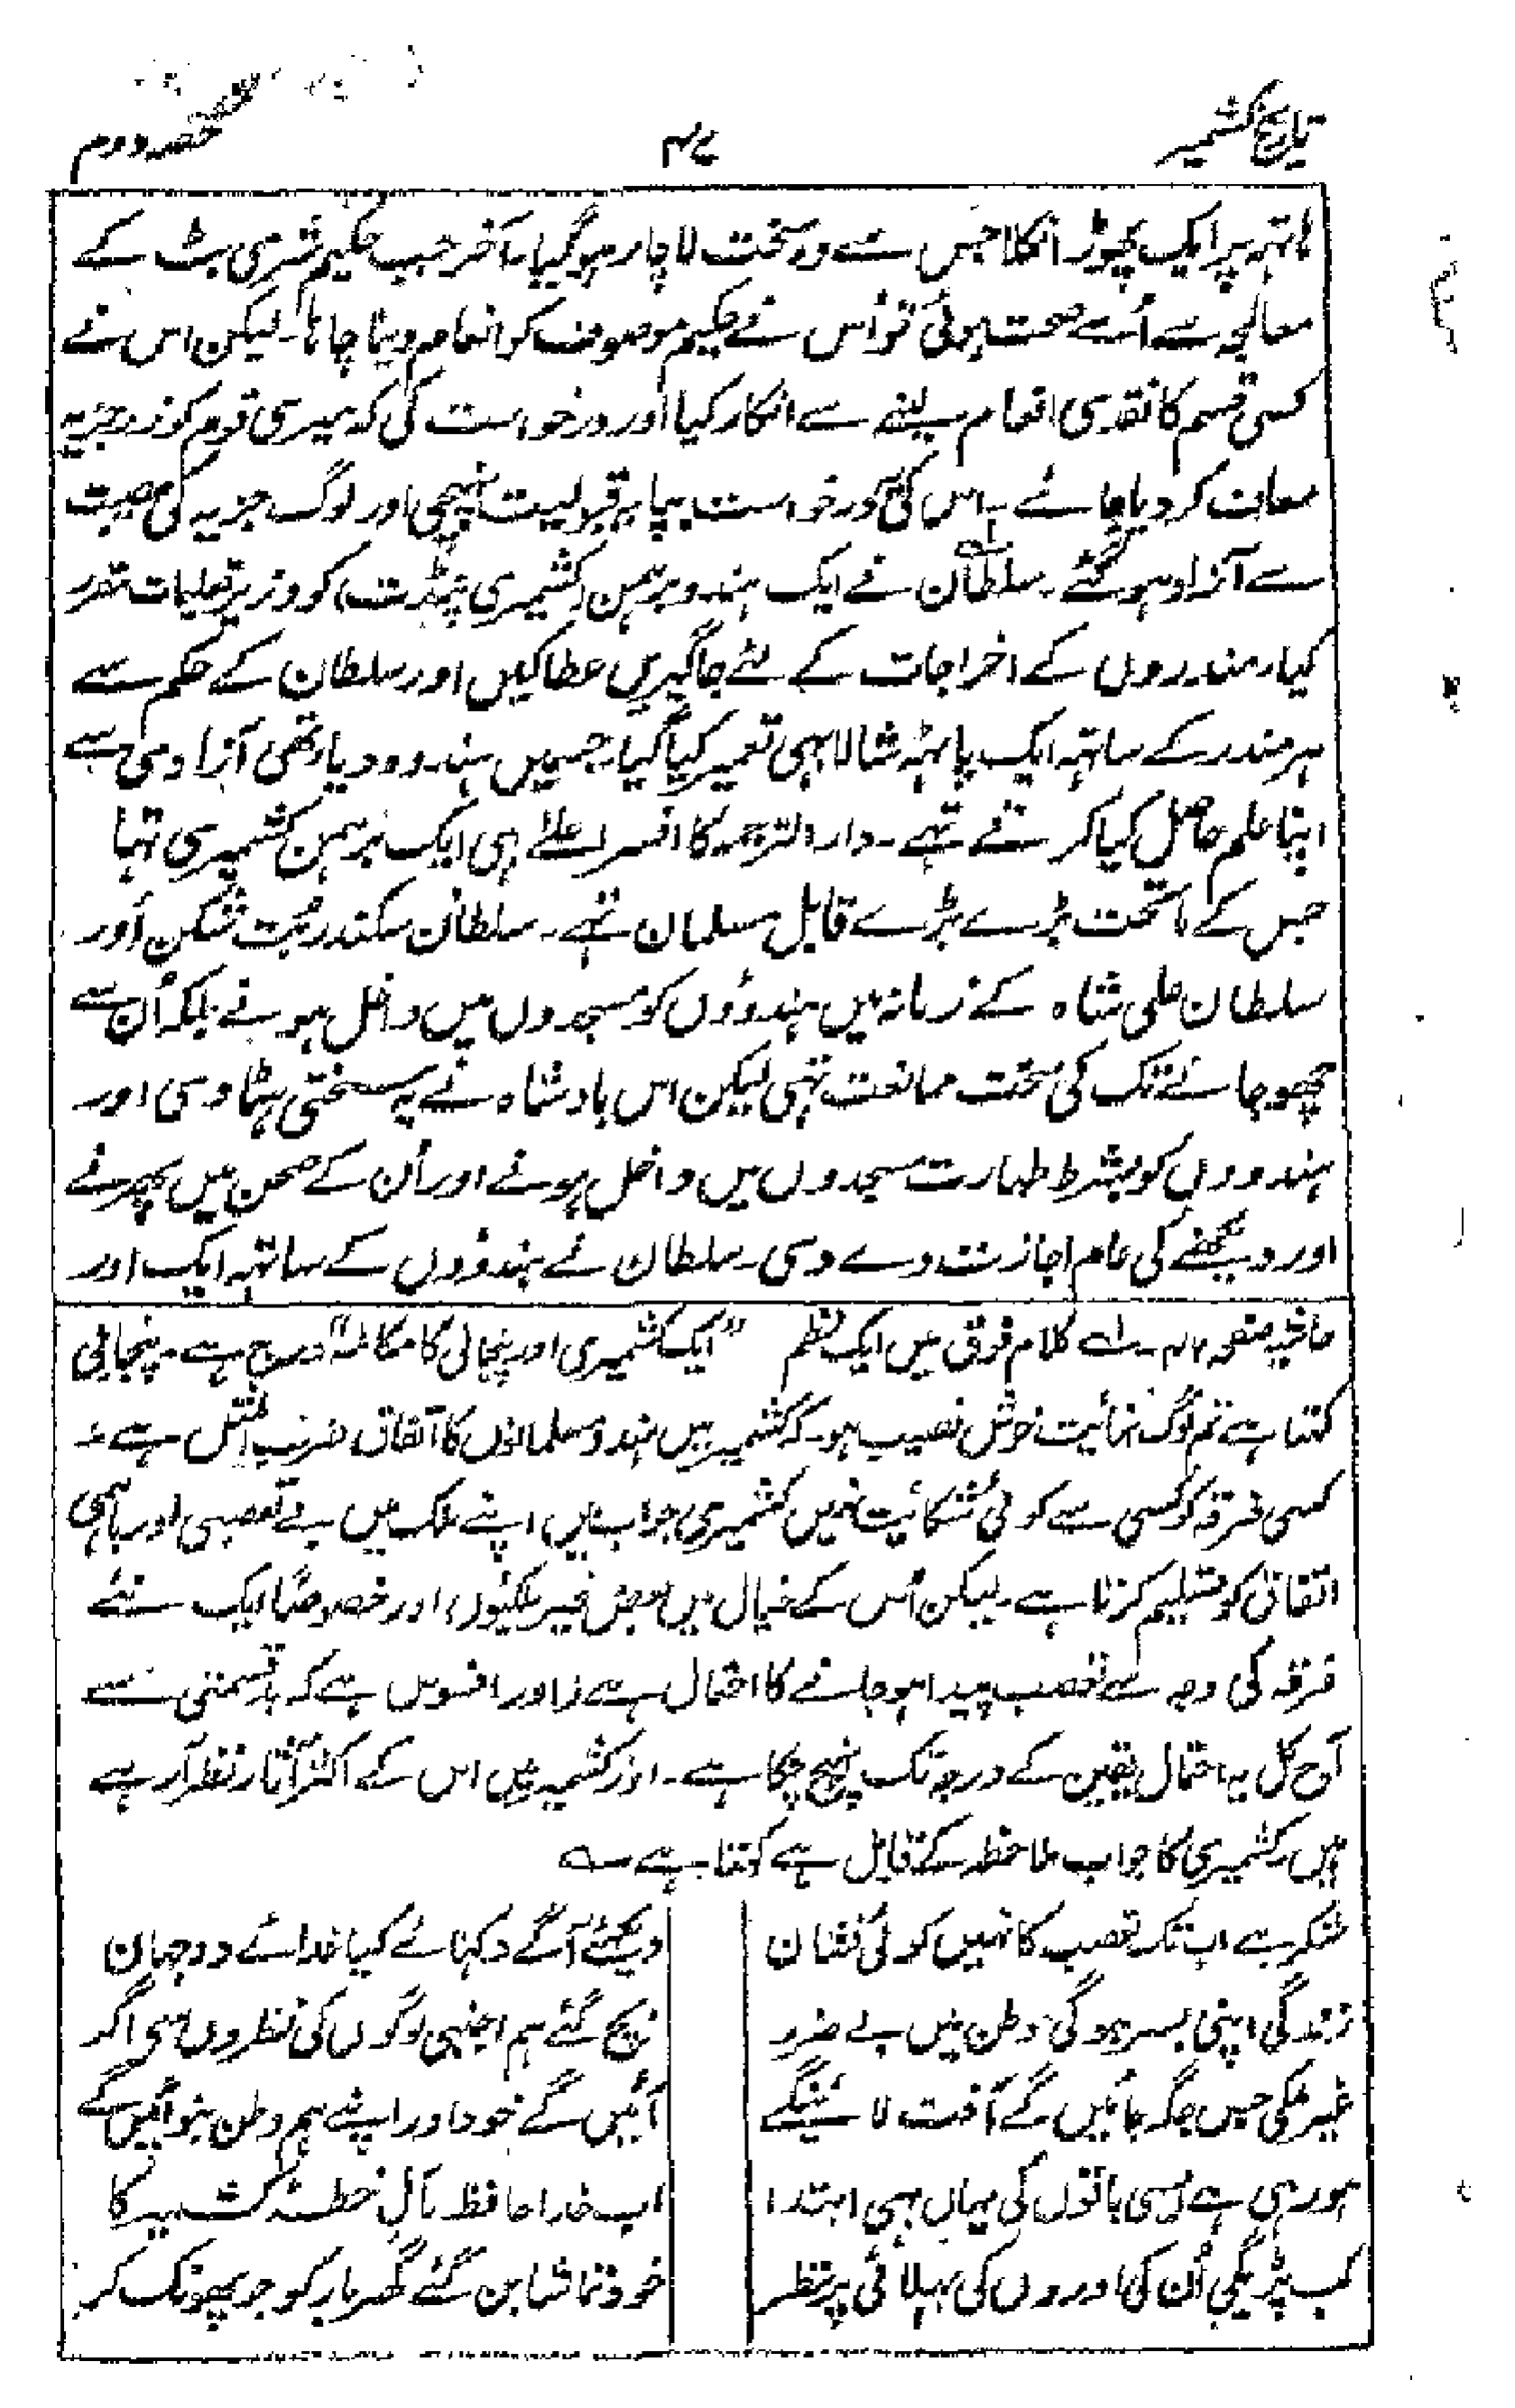 تاریخ کشمیر
۴۷
حصہ دوم
ہاتہہ پر ایک پھوڑا نکلا جس سے وہ سخت لاچار ہو گیا۔ آخر جب حکیم شری بٹ کے
معالجہ سے اُسے صحت ہوئی تو اُس نے حکیم موصوف کو انعام دینا چاہا۔ لیکن اس نے
کسی قسم کا نقدی انعام لینے سے انکار کیا اور درخواست کی کہ میری قوم کو زر جزیہ
معاف کر دیا جائے۔ اس کی درخواست بپایہ قبولیت پہنچی اور لوگ جزیہ کی مصیبت
سے آزاد ہو گئے۔ سلطان نے ایک ہندو برہمن (کشمیری پنڈت) کو وزیر تعلیمات مقرر
کیا۔ مندروں کے اخراجات کے لئے جاگیریں عطا کیں اور سلطان کے حکم سے
ہر مندر کے ساتہہ ایک پاٹہہ شالا بہی تعمیر کیا گیا۔ جسمیں ہندو ودیارتھی آزادی سے
اپنا علم حاصل کیا کرتے تہے۔ دارالترجمہ کا افسر اعلےٰ بہی ایک برہمن کشمیری تہا
جس کے ماتحت بڑے بڑے قابل مسلمان تہے۔ سلطان سکندر بُت شکن اور
سلطان علی شاہ کے زمانہ میں ہندوؤں کو مسجدوں میں داخل ہونے بلکہ اُن سے
چھو جانے تک کی سخت ممانعت تہی لیکن اس بادشاہ نے یہ سختی ہٹا دی اور
ہندووں کو بشرط طہارت مسجدوں میں داخل ہونے اور اُن کے صحن میں پھرنے
اور دیکھنے کی عام اجازت دے دی۔ سلطان نے ہندوؤں کے ساتہہ ایک اور
حاشیہ صفحہ ۴۷۔ ۱؎ کلام فوق میں ایک نظم "ایک کشمیری اور پنجابی کا مکالمہ" درج ہے۔ پنجابی
کہتا ہے تم لوگ نہائیت خوش نصیب ہو۔ کہ کشمیر میں ہندو مسلمانوں کا اتفاق ضرب المثل ہے۔
کسی فرقہ کو کسی سے کوئی شکائیت نہیں کشمیری جواب میں اپنے ملک میں بے تعصبی اور باہمی
اتفاق کو تسلیم کرتا ہے۔ لیکن اُس کے خیال میں بعض غیر ملکیوں اور خصوصاً ایک نئے
فرقہ کی وجہ سے تعصب پیدا ہو جانے کا احتمال ہے (اور افسوس ہے کہ بد قسمتی سے
آج کل یہ احتمال یقین کے درجہ تک پہنچ چکا ہے۔ اور کشمیر میں اس کے اکثر آثار نظر آ رہے
ہیں) کشمیری کا جواب ملاحظہ کے قابل ہے کہتا ہے ؎
شکر ہے اب تک تعصب کا نہیں کوئی نشان
دیکھئے آگے دکہائے کیا خدائے دو جہان
زندگی اپنی بسر ہوگی وطن میں بے ضرر
بچ گئے ہم اجنبی لوگوں کی نظروں سے اگر
غیر ملکی جس جگہ جائیں گے آفت لائینگے
آئیں گے خود اور اپنے ہم وطن بنوائیں گے
ہو رہی ہے ایسی باتوں کی یہاں بہی ابتدا
اب خدا حافظ مآلِ خطۂ کشمیر کا
کب پڑیگی اُن کی اوروں کی بہلائی پر نظر
خود تماشا بن گئے گھر بار کو جو پھونک کر